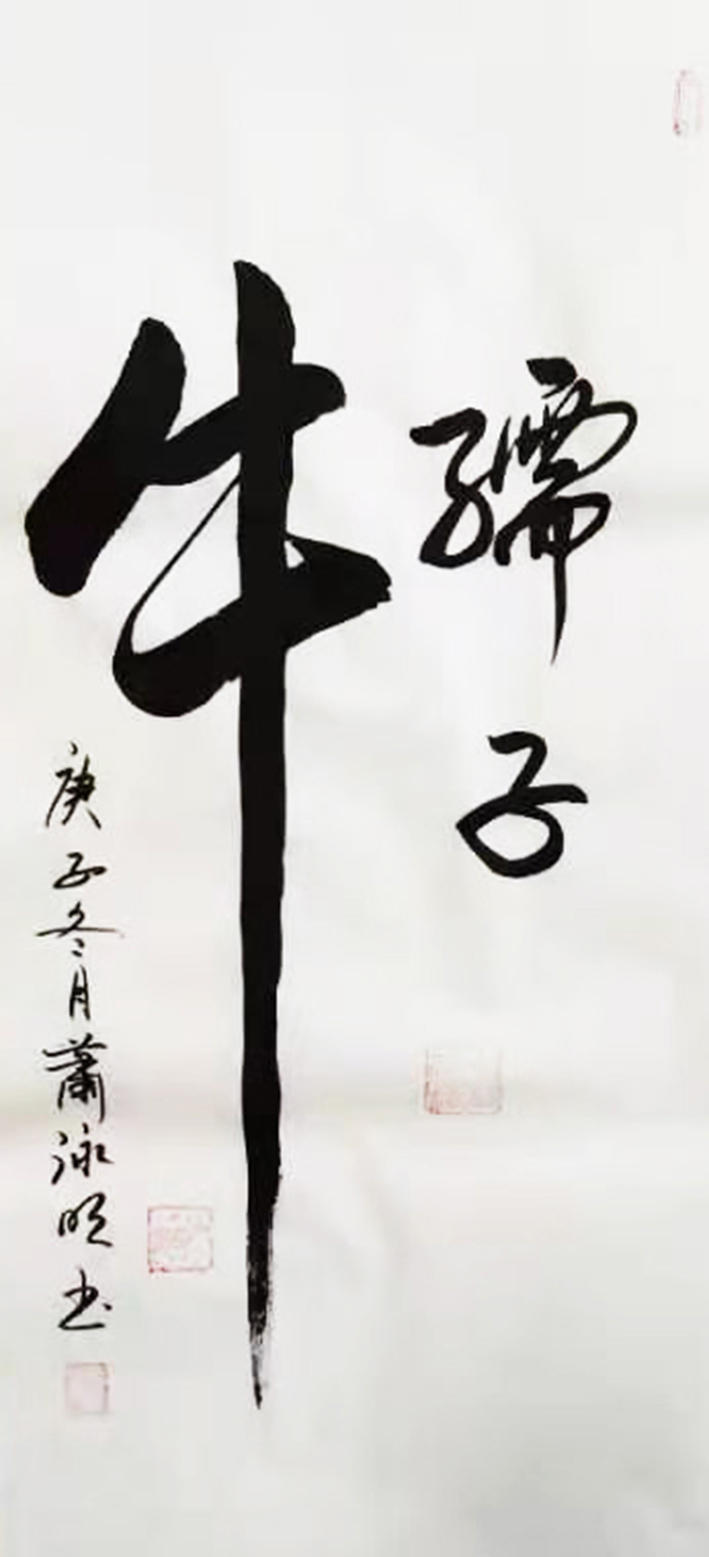 孺子
牛
庚子冬月蕭泳明书